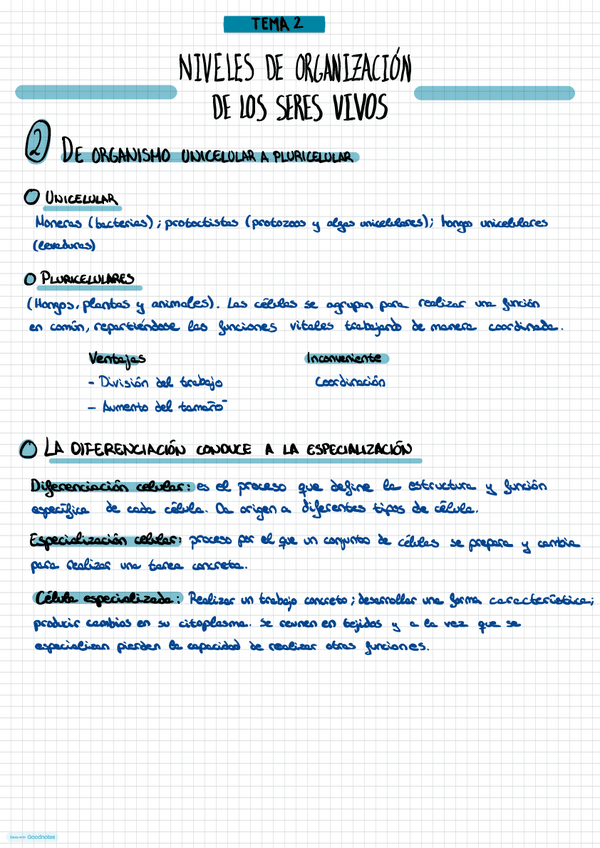 TEMA 2
NIVELES DE ORGANIZACIÓN
DE LOS SERES VIVOS
2 DE ORGANISMO UNICELULAR A PLURICELULAR
UNICELULAR
Moneras (bacterias); protoctistas (protozoos y algas unicelulares); hongo unicelulares
(levaduras)
PLURICELULARES
(Hongos, plantas y animales). Las células se agrupan para realizar una función
en común, repartiéndose las funciones vitales trabajando de manera coordinada.
Ventajas Inconveniente
- División del trabajo Coordinación
- Aumento del tamaño
LA DIFERENCIACIÓN CONDUCE A LA ESPECIALIZACIÓN
Diferenciación celular: es el proceso que define la estructura y función
específica de cada célula. Da origen a diferentes tipos de célula.
Especialización celular: proceso por el que un conjunto de células se prepara y cambia
para realizar una tarea concreta.
Célula especializada: Realizar un trabajo concreto; desarrollar una forma característica;
producir cambios en su citoplasma. Se reunen en tejidos y a la vez que se
especializan pierden la capacidad de realizar otras funciones.
Goodnotes